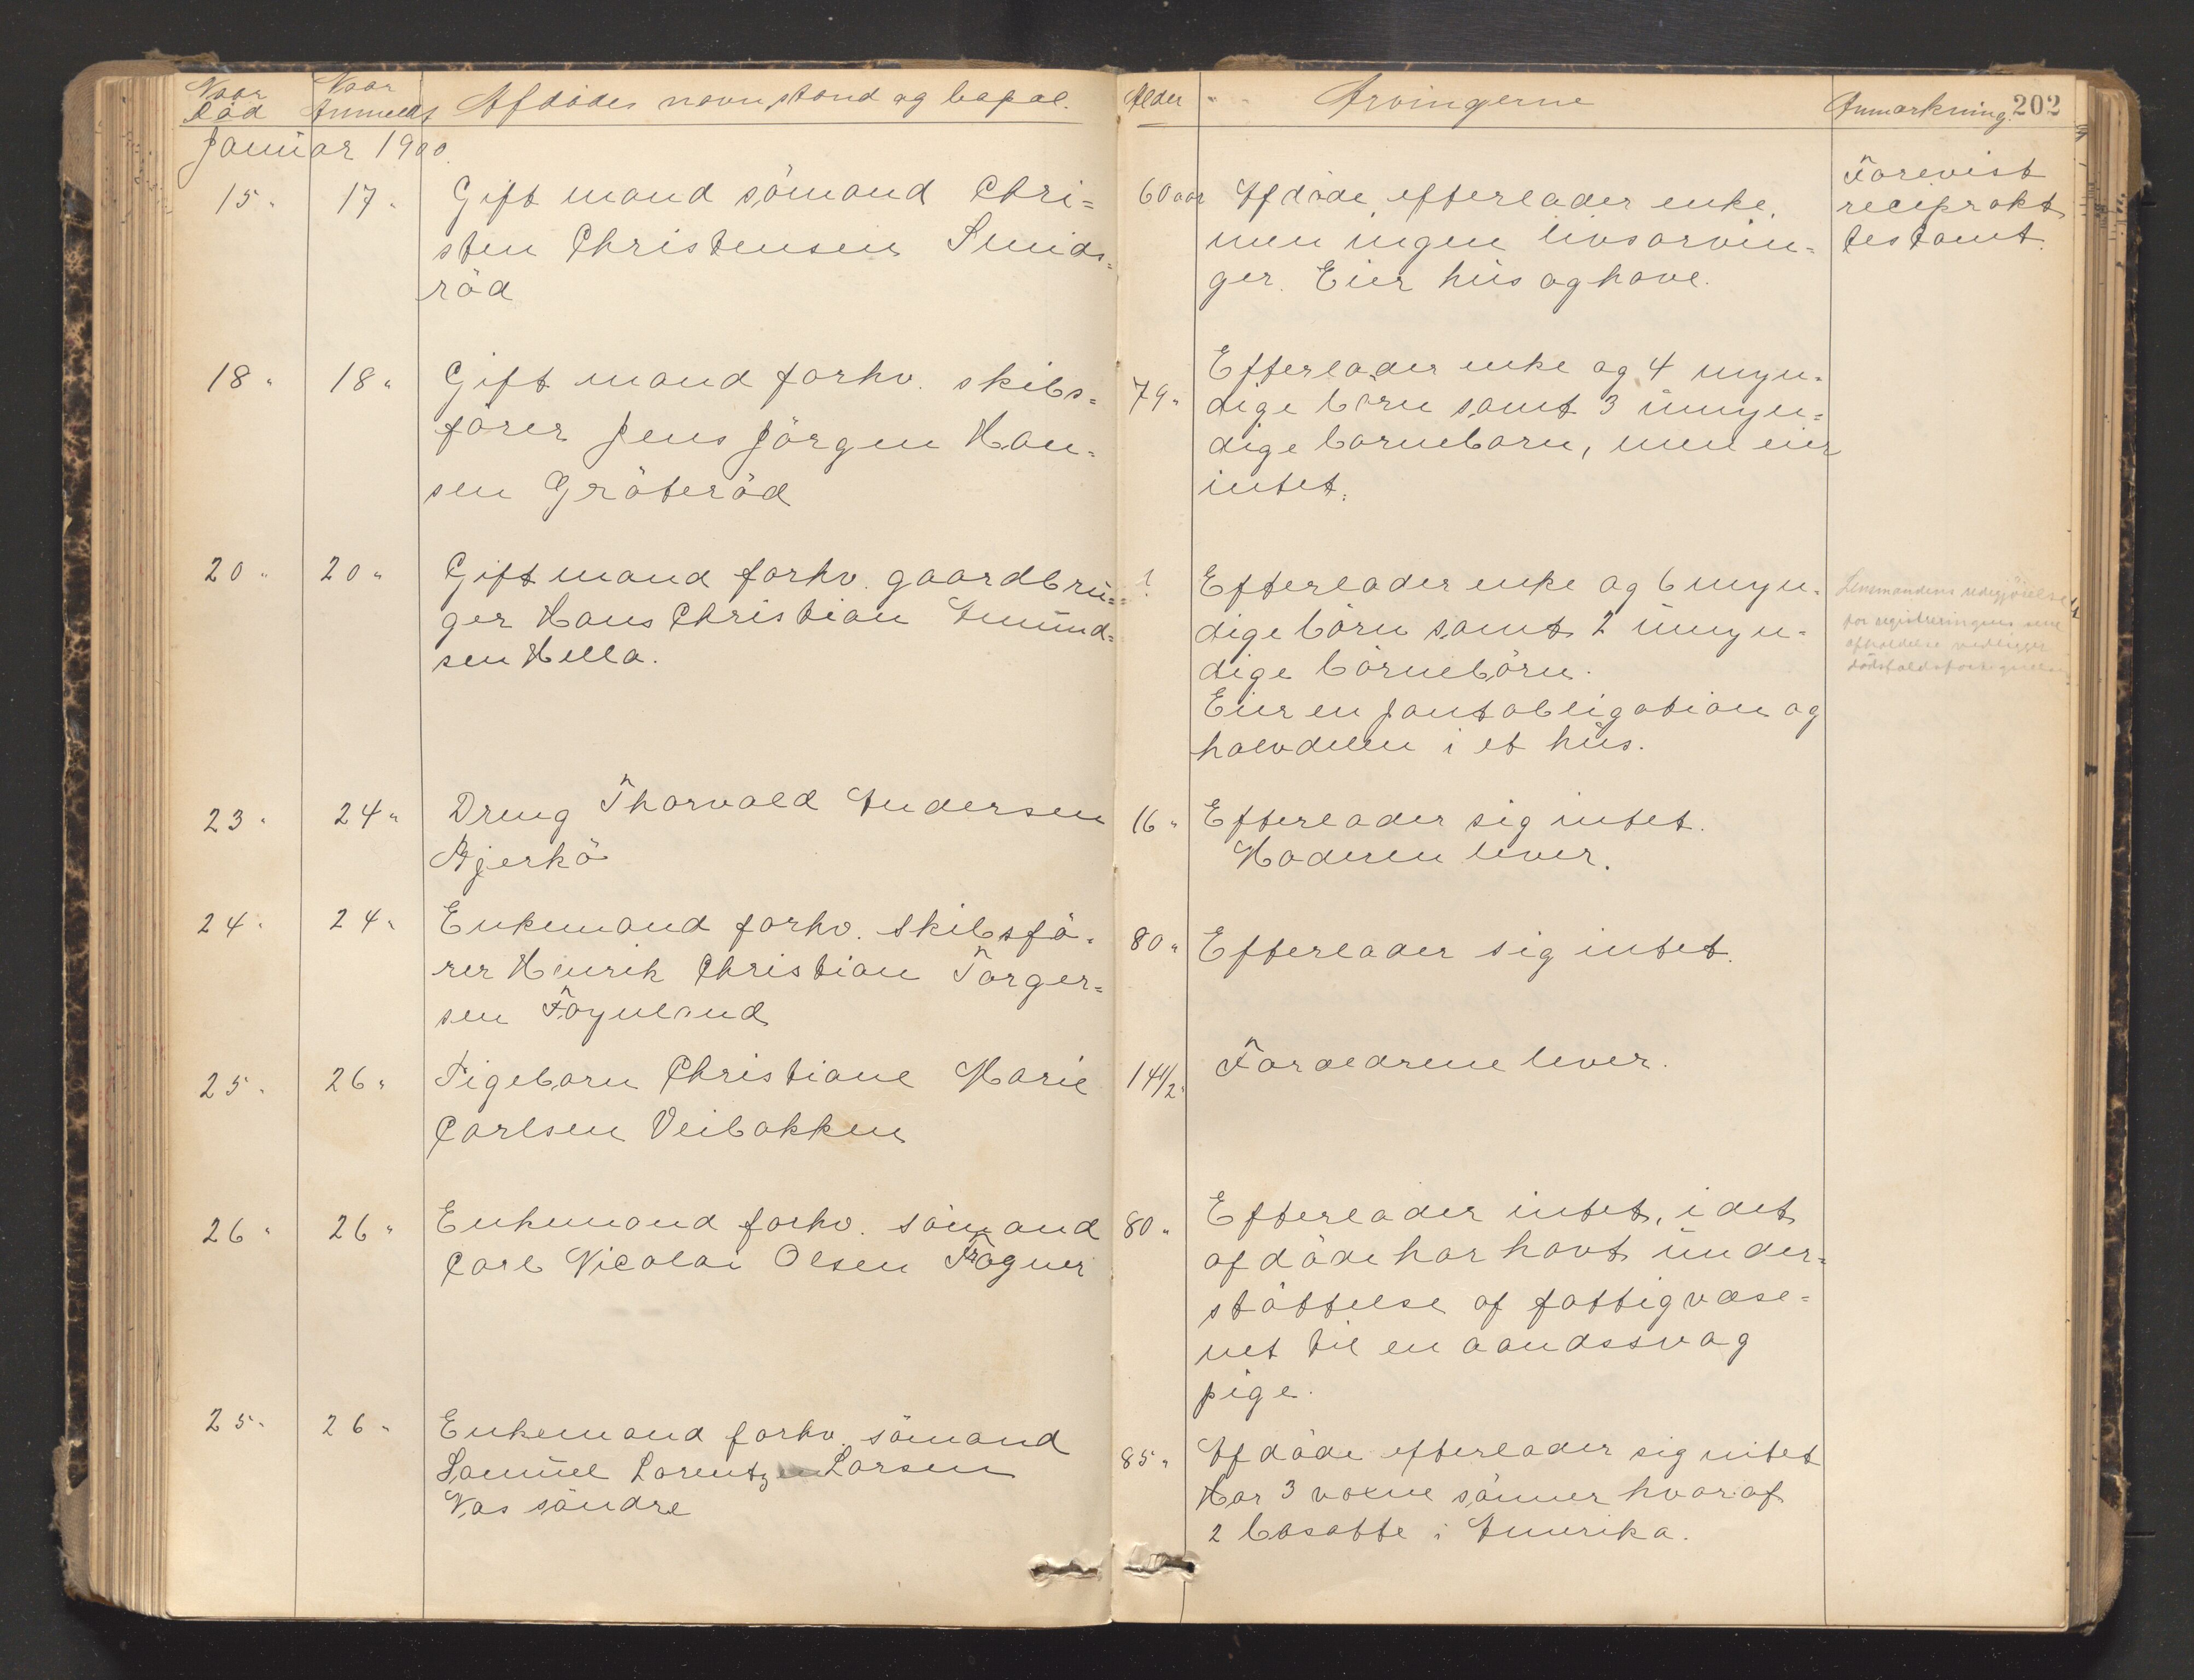 Naar Död
Naar Anmeldt
Afdödes navn, stand og bopæl.
Alder
Arvingerne
Anmærkning.
202
Januar 1900.
15. 17. Gift mand sömand Chri=
sten Christensen Smids=
röd
60 aar
Afdöde efterlader enke,
men ingen livsarvin=
ger. Eier hus og have.
Forevist
reciprokt
testamt.
18 " 18 " Gift mand forhv. skibs=
förer Jens Jörgen Han=
sen Gröteröd
79 "
Efterlader enke og 4 myn=
dige börn samt 3 umyn=
dige börnebörn, men eier
intet.
20 " 20 " Gift mand forhv. gaardbru=
ger Hans Christian Amund=
sen Hella.
?
Efterlader enke og 6 myn=
dige börn samt 2 umyn=
dige börnebörn.
Eier en pantobligation og
halvdelen i et hus.
Lensmandens redegjörelse
for registreringens
afholdelse vedligger
dödsfaldsfortegnelsen
23 " 24 " Dreng Thorvald Andersen
Bjerkö
16 "
Efterlader sig intet.
Moderen lever.
24 " 24 " Enkemand forhv. skibsfö=
rer Henrik Christian Torger=
sen Föynland
80 "
Efterlader sig intet.
25 " 26 " Pigebarn Christiane Marie
Carlsen Veibakken
14 1/2 "
Forældrene lever.
26 " 26 " Enkemand forhv. sömand
Carl Nicolai Olsen Fagner
80 "
Efterlader intet, idet
afdöde har havt under=
stöttelse af fattigvæse=
net til en aandssvag
pige.
25 " 26 " Enkemand forhv. sömand
Samuel Lorentz Larsen
Vas söndre
85 "
Afdöde efterlader sig intet
Har 3 voxne sönner hvoraf
2 bosatte i Amerika.